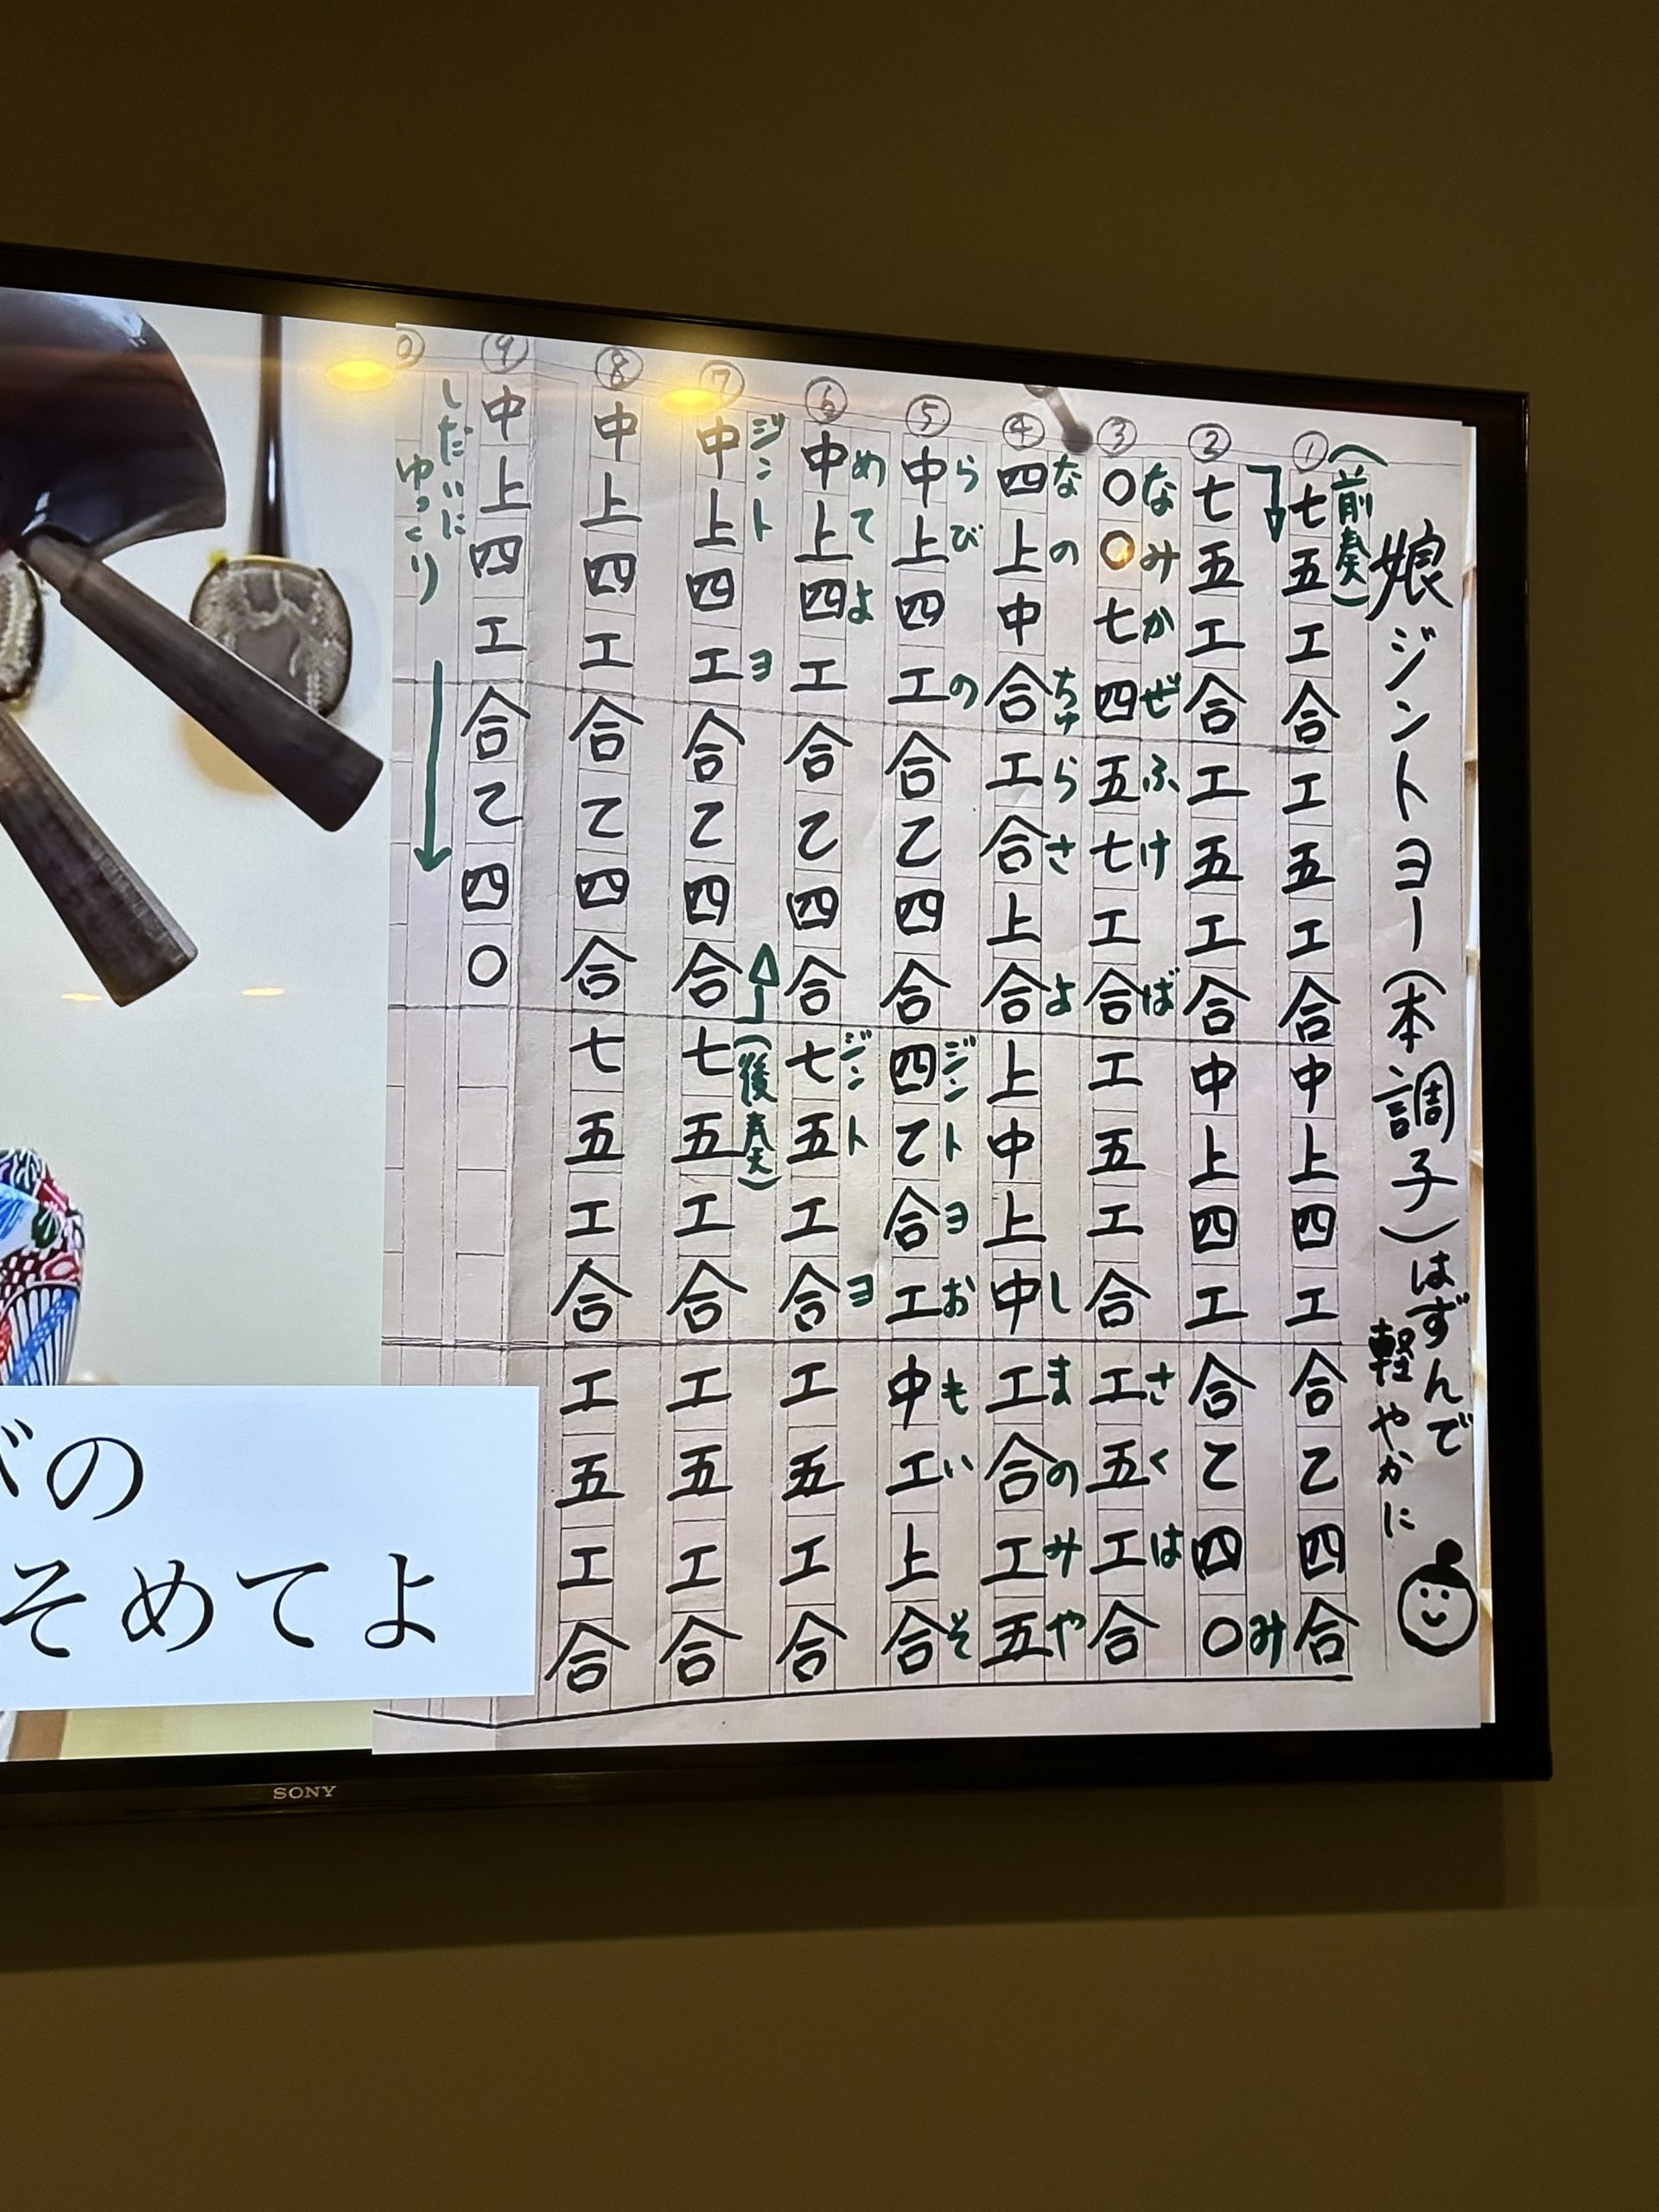 娘ジントヨー(本調子)はずんで
軽やかに
(前奏)
①七五工合工五工合中上四工合乙四合
②七五工合工五工合中上四工合乙四〇
み
なみかぜふけばさくは
③〇〇七四五七工合工五工合工五工合
なのちゅらさよしまのみや
④四上中合工合上合上中上中工合工五
らびのジントヨおもいそ
⑤中上四工合乙四合四乙合工中工上合
めてよジントヨ
⑥中上四工合乙四合七五工合工五工合
ジントヨ(後奏)
⑦中上四工合乙四合七五工合工五工合
⑧中上四工合乙四合七五工合工五工合
⑨中上四工合乙四〇
しだいに
ゆっくり
の
そめてよ
SONY